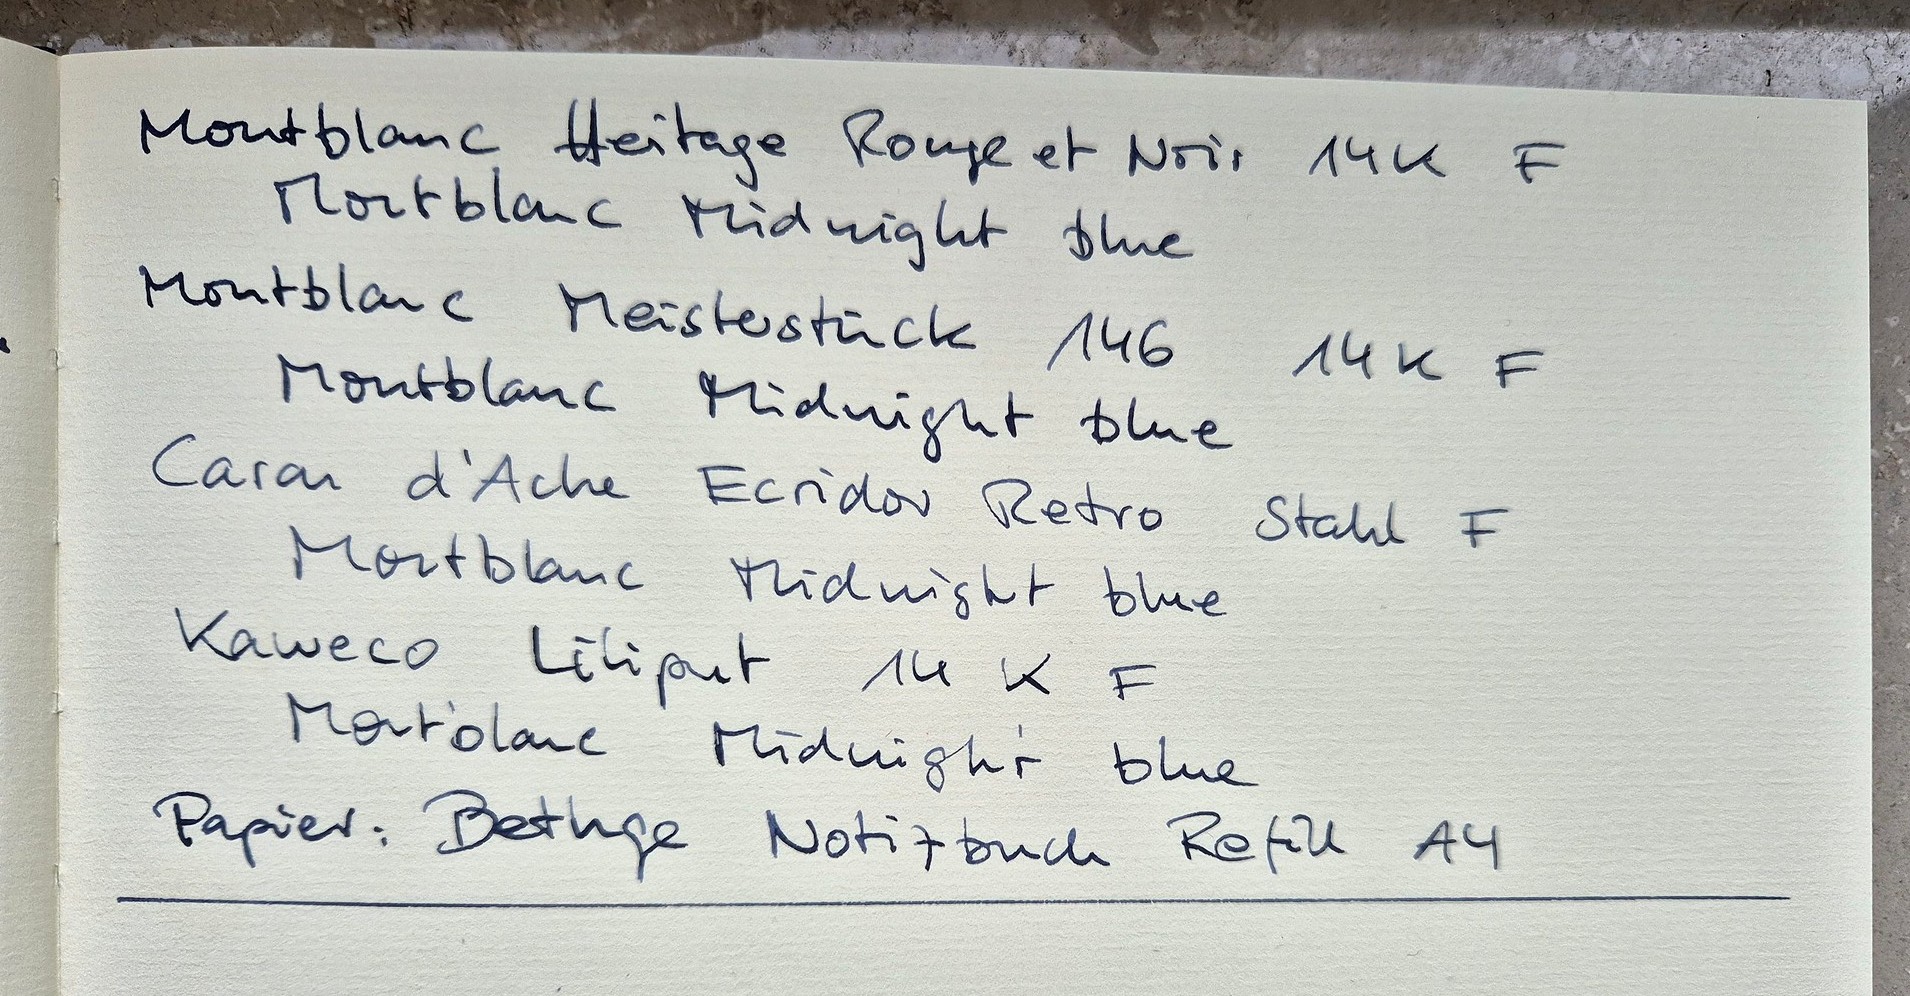 Montblanc Heritage Rouge et Noir 14K F
Montblanc Midnight blue
Montblanc Meisterstück 146 14K F
Montblanc Midnight blue
Caran d'Ache Ecridor Retro Stahl F
Montblanc Midnight blue
Kaweco Liliput 14 K F
Montblanc Midnight blue
Papier: Bethge Notizbuch Refill A4